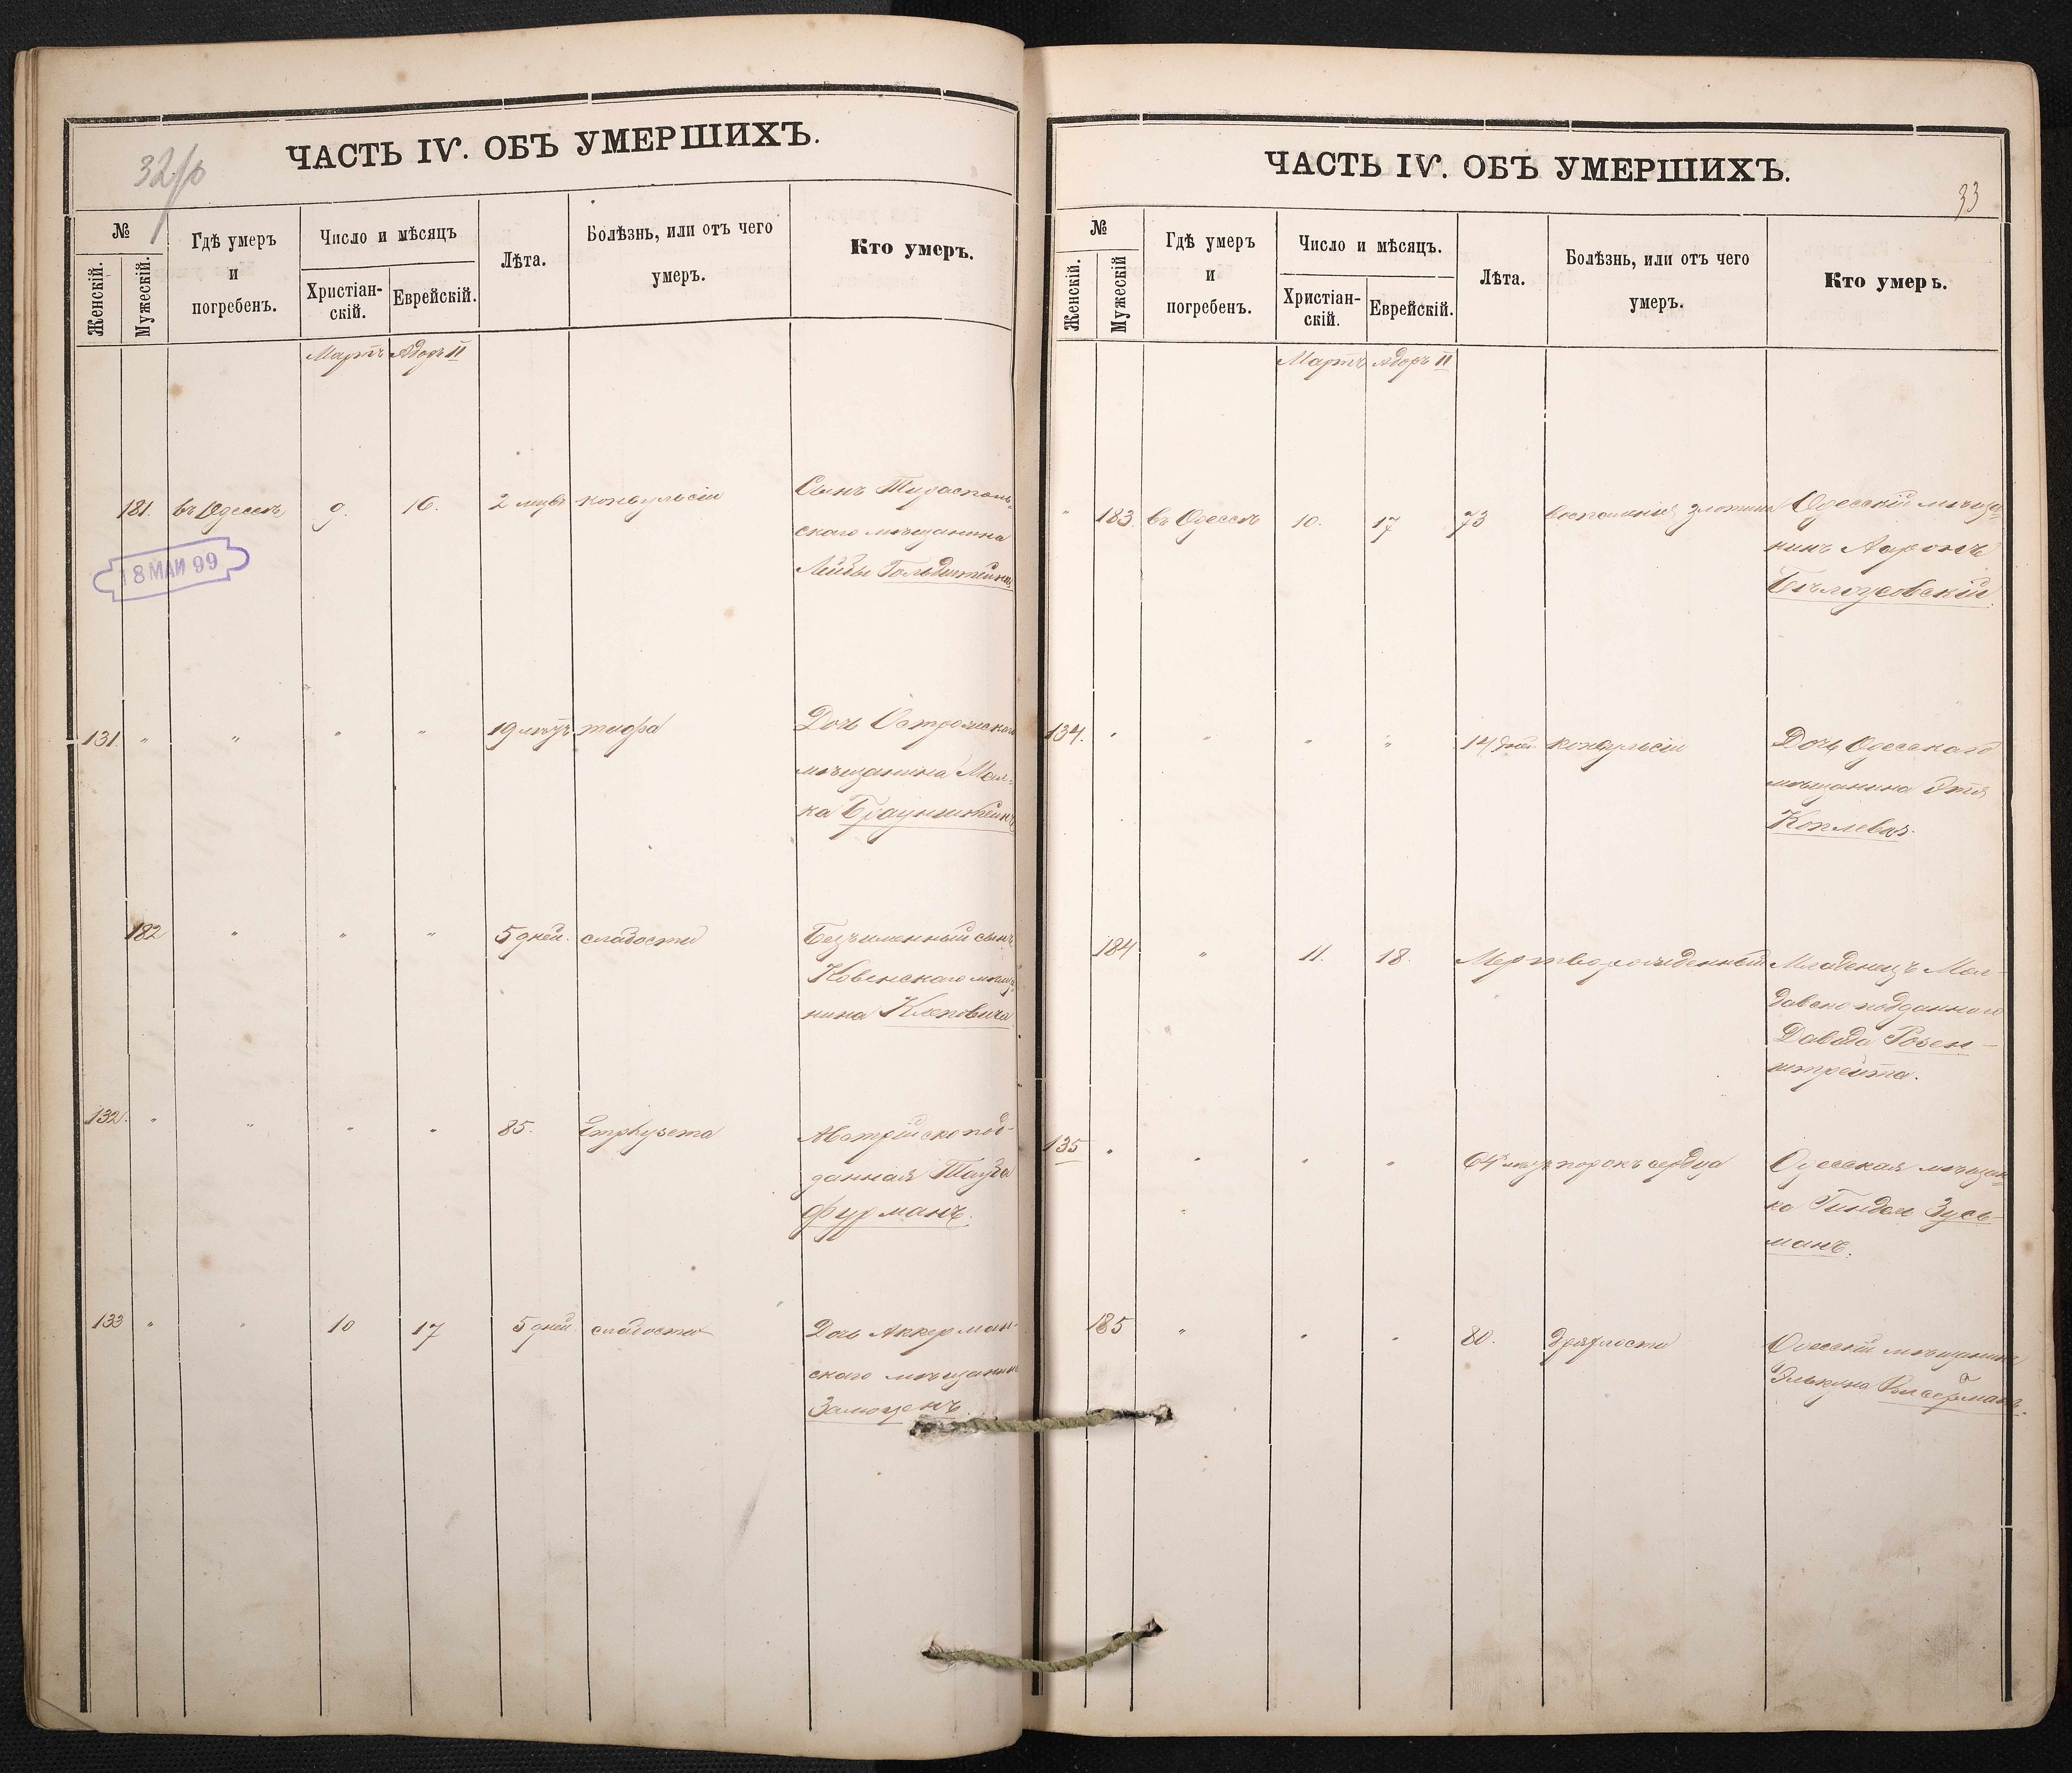 32/об
ЧАСТЬ IV. ОБЪ УМЕРШИХЪ.
№
Женскій.
Мужескій.
Гдѣ умеръ
и
погребенъ.
Число и мѣсяцъ
Христіан-
скій.
Еврейскій.
Лѣта.
Болѣзнь, или отъ чего
умеръ.
Кто умеръ.
Мартъ Адоръ II
181. въ Одессѣ 9. 16. 2 конвульсіи Сынъ Тирасполь-
скаго мѣщанина
Лейбы Гольдштейна
18 МАИ 99
131. " " " " 19 лѣтъ тифа Дочь
мѣщанина Мал-
ка Браунштейнъ
182 " " " 5 дней. слабости Безъименный сынъ
Ковенскаго мѣща-
нина Клеповича
132. " " " " 85. Emphysema Австрійско под-
данная Тауба
Фурманъ.
133 " " 10 17 5 дней. слабости Дочь Аккерман-
скаго мѣщанина
33
ЧАСТЬ IV. ОБЪ УМЕРШИХЪ.
№
Женскій.
Мужескій
Гдѣ умеръ
и
погребенъ.
Число и мѣсяцъ.
Христіан-
скій.
Еврейскій.
Лѣта.
Болѣзнь, или отъ чего
умеръ.
Кто умеръ.
Мартъ Адоръ II
" 183. въ Одессѣ 10. 17 73 Одесскій мѣща-
нинъ Ааронъ
134. " " " " 14 дней. конвульсіи Дочь Одесскаго
мѣщанина Этя
Коплевая.
184 " 11. 18. Мертворожденный Младенецъ Мол-
давско подданнаго
Давида Розен-
штрейха.
135 " " " " 64 лѣтъ порокъ сердца Одесская мѣщан-
ка Гиндель Зусь-
манъ.
185 " " " 80. дряхлости Одесскій мѣщанинъ